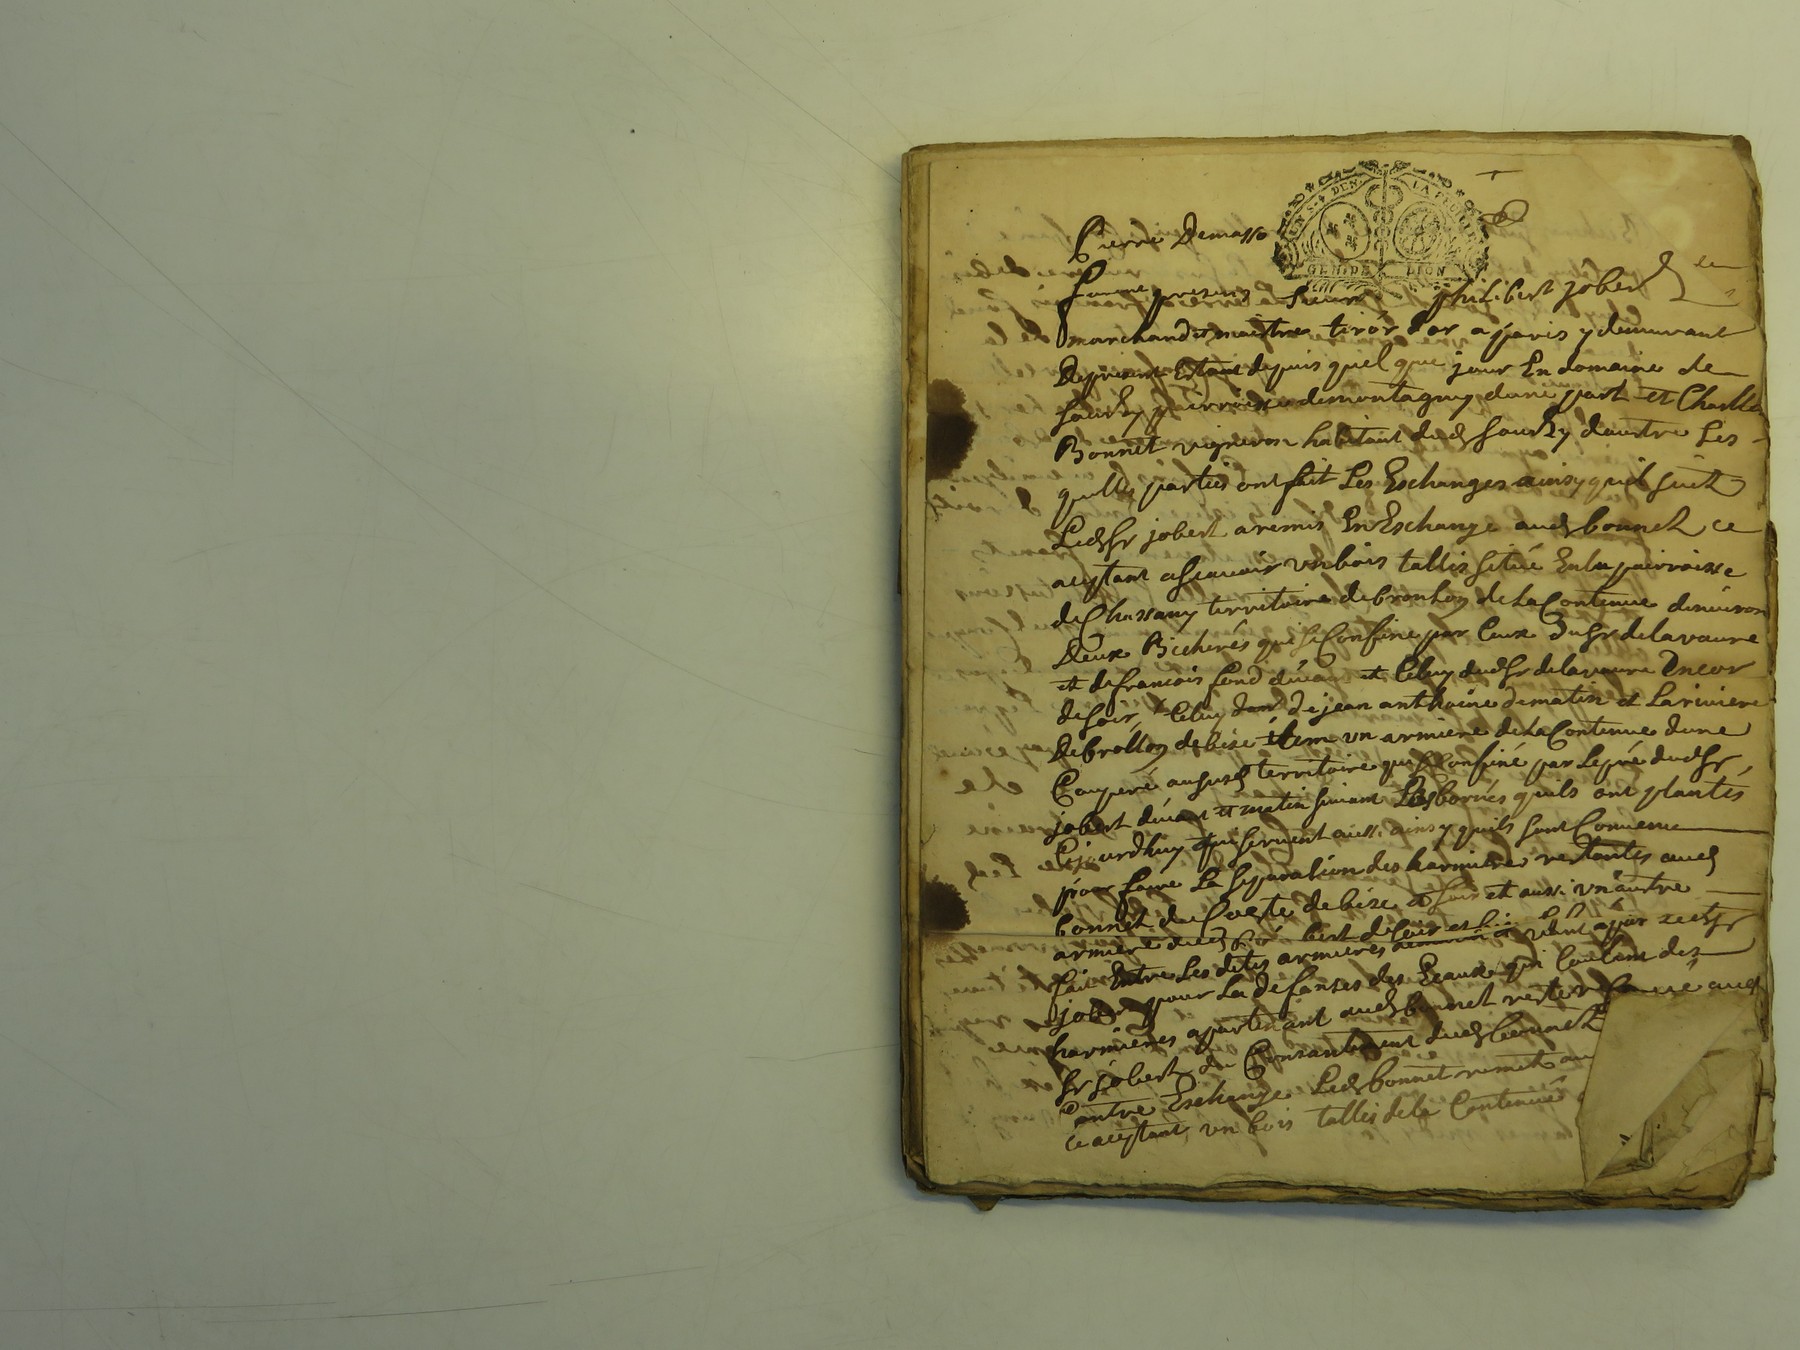 Pierre Demasso
GEN. DE LION
furent presens sieur philibert jobert
marchand et maistre tirór d'or a paris y demeurant
De present Estant depuis quel que jour En domaine de
Sourzy parroisse de montagny dune part et Charlle
Bonnet vigneron habitant dud Sourzy dautre Les
quelles parties ont fait Les Eschanges ainsy quil suit
Led Sr jobert a remis En Eschange aud bonnet ce
aceptant a scauoir vn bois tallis situé En la parroisse
de Chassany territoire de brouhon de La Contenue denuiron
Deux Bicherés qui se Confine par Ceux du Sr de lavaure
et de francois fond et Celuy dud Sr de lavaure Encor
de soir, Celuy de jean anthoine de matin et La riuiere
De brollon de bize Item vn armiere de La Contenue dune
Couperé au susd territoire qui se Confine par Le pré dud Sr
jobert et matin suiuant Les bornés quils ont plantés
Cejourdhuy qui seruent ainsy quils sont Conuenu
pour faire La separation des harmieres restantes aud
bonnet du Coste de bize et soir et aussi vn autre
armiere dud
fait Entre Les dites armieres par
jobert pour La defanses des Eeaux qui Coulent des
harmieres apartenant aud bonnet reste aud
Sr jobert du Consantement dud bonnet
Contre Eschange Led bonnet remet au
ce aceptant, vn bois tallis de la Contenué